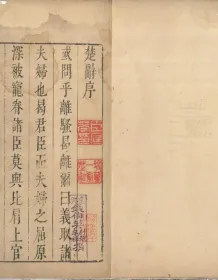 楚辭序
或問乎離騷曷離翳曰義取諸
夫婦也曷君臣而夫婦之屈原
深被寵眷諸臣莫與比肩上官